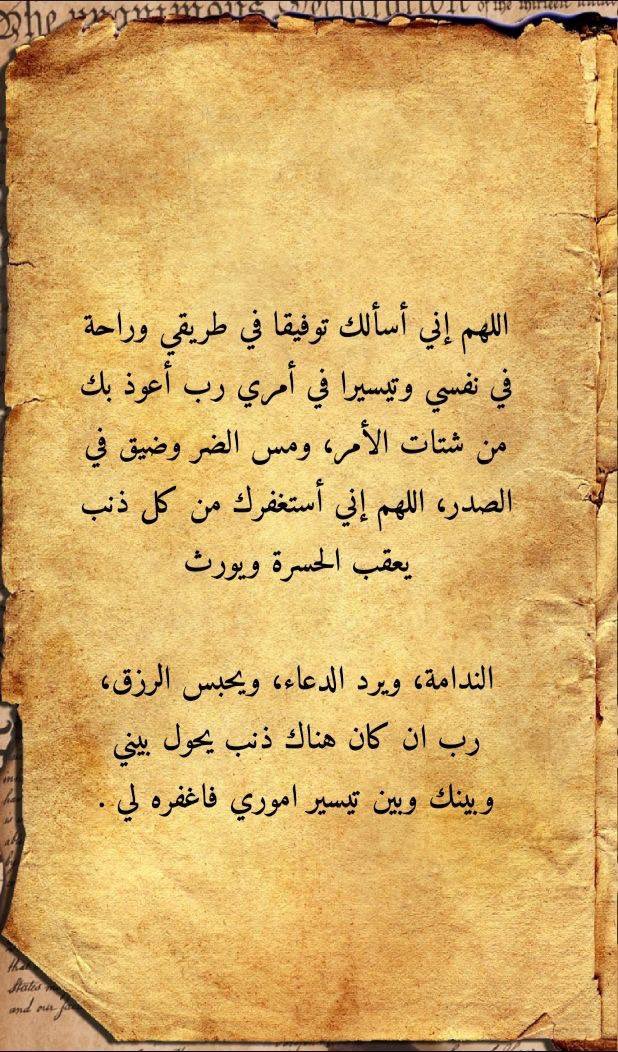 The unanimous Declaration of the thirteen united
اللهم إني أسألك توفيقا في طريقي وراحة
في نفسي وتيسيرا في أمري رب أعوذ بك
من شتات الأمر، ومس الضر وضيق في
الصدر، اللهم إني أستغفرك من كل ذنب
يعقب الحسرة ويورث
الندامة، ويرد الدعاء، ويحبس الرزق،
رب ان كان هناك ذنب يحول بيني
وبينك وبين تيسير اموري فاغفره لي .
that
States
and our